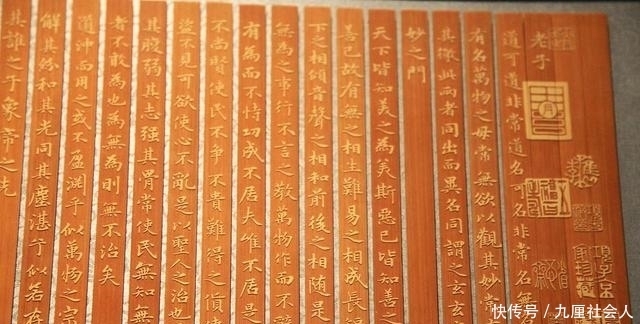 老子
道可道非常道名可名非常名無
有名萬物之母常無欲以觀其妙常
其徼此兩者同出而異名同謂之玄玄
妙之門
天下皆知美之為美斯惡已皆知善之
善已故有無之相生難易之相成長
下之相傾音聲之相和前後之相隨是
無為之事行不言之教萬物作而不
有為而不恃功成不居夫唯不居是
不尚賢使民不爭不貴難得之貨使
盜不見可欲使心不亂是以聖人之治也
其腹弱其志强其骨常使民無知無
者不敢為也為無為則無不治矣
道沖而用之或不盈淵乎似萬物之宗
解其紛和其光同其塵湛乎似若存
其誰之子象帝之先
快传号 / 九厘社会人